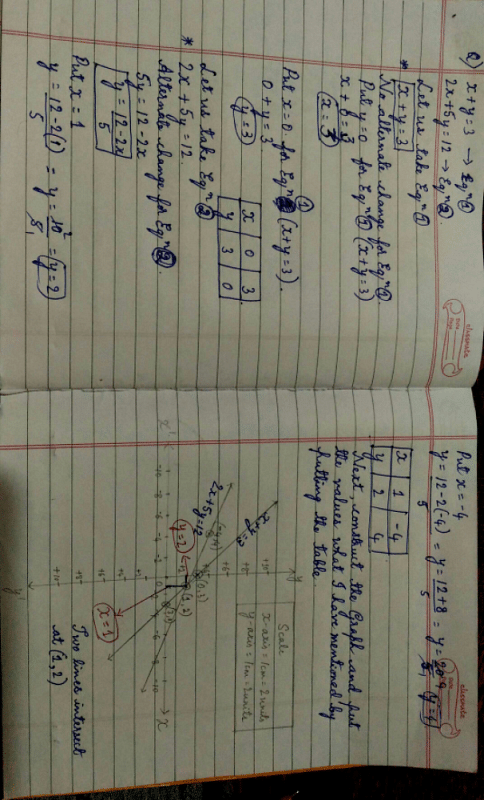 Q) x+y=3 → Eqⁿ ①
2x+5y=12 → Eqⁿ ②.
Let us take Eqⁿ ①
* x+y=3
No alternate change for Eqⁿ ①.
Put y=0 for Eqⁿ ① (x+y=3)
x+0=3
x=3
Put x=0 for Eqⁿ ① (x+y=3).
0+y=3
y=3
x 0 3
y 3 0
Let us take Eqⁿ ②
* 2x+5y=12.
Alternate change for Eqⁿ ②.
5y=12-2x
y=12-2x/5
Put x=1
y=12-2(1)/5 = y=10²/5₁ = y=2
classmate
Date
Page
Put x=-4
y=12-2(-4)/5 = y=12+8/5 = y=20 4/5₁ y=4
x 1 -4
y 2 4
Next, construct the Graph and put
the values what I have mentioned by
putting the table.
Scale
x-axis=1cm=2units
y-axis=1cm=2units
2x+5y=12
y=2
(0,3)
(1,2)
x=1
→ x
y'
Two lines intersect
at (1,2)
classmate
Date
Page